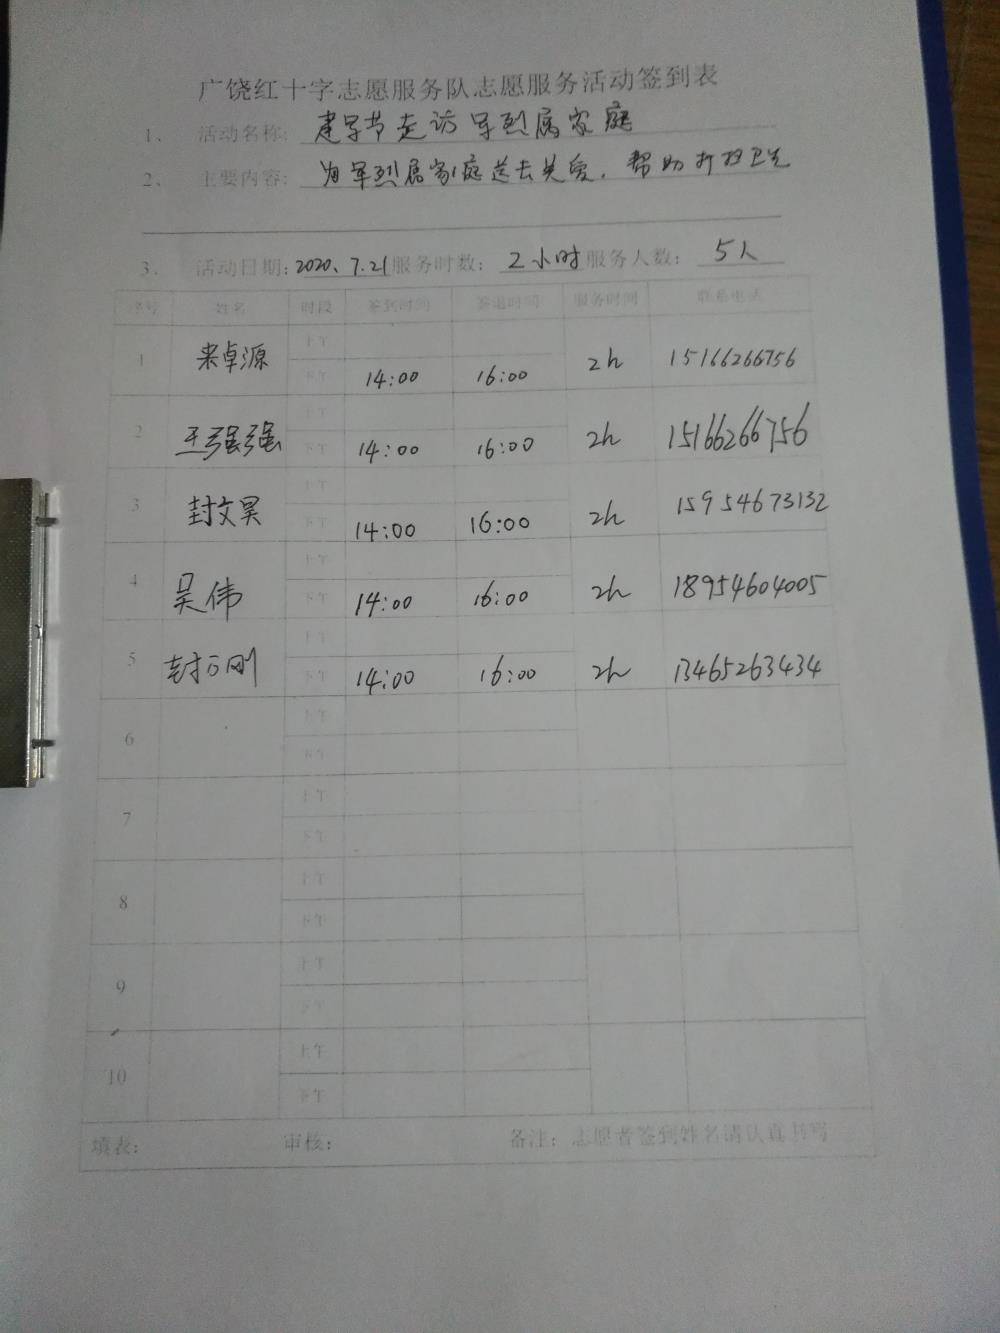 广饶红十字志愿服务队志愿服务活动签到表
1、 活动名称: 建军节走访军烈属家庭
2、 主要内容: 为军烈属家庭送去关爱,帮助打扫卫生
3、 活动日期: 2020、7.21 服务时数: 2小时 服务人数: 5人
序号 姓名 时段 签到时间 签退时间 服务时间 联系电话
1 来卓源 上午
下午 14:00 16:00 2h 15166266756
2 王强强 上午
下午 14:00 16:00 2h 15166266756
3 封文昊 上午
下午 14:00 16:00 2h 15954673132
4 吴伟 上午
下午 14:00 16:00 2h 18954604005
5 封 刚 上午
下午 14:00 16:00 2h 13465263434
6 上午
下午
7 上午
下午
8 上午
下午
9 上午
下午
10 上午
下午
填表: 审核: 备注: 志愿者签到姓名请认真书写